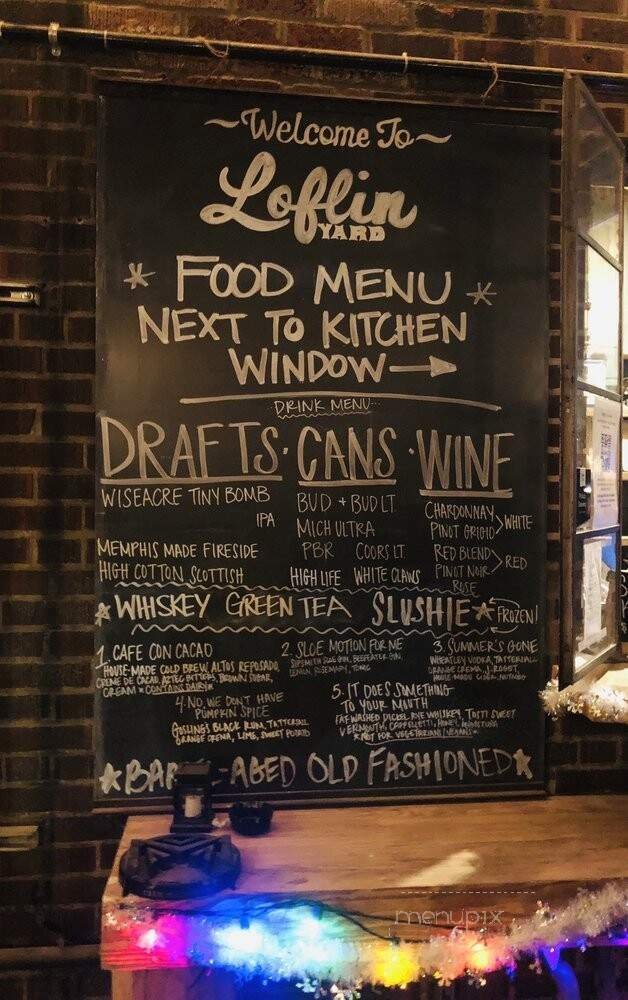 ~Welcome To~
Loflin
YARD
* FOOD MENU *
NEXT TO KITCHEN
WINDOW→
DRINK MENU
DRAFTS · CANS · WINE
WISEACRE TINY BOMB
IPA
MEMPHIS MADE FIRESIDE
HIGH COTTON SCOTTISH
BUD + BUD LT
MICH ULTRA
PBR COORS LT
HIGH LIFE WHITE CLAWS
CHARDONNAY
PINOT GRIGIO > WHITE
RED BLEND
PINOT NOIR > RED
ROSE
★ WHISKEY GREEN TEA SLUSHIE ★ FROZEN!
1. CAFE CON CACAO
HOUSE-MADE COLD BREW, ALTOS REPOSADO,
CREME DE CACAO, AZTEC BITTERS, BROWN SUGAR,
CREAM * CONTAINS DAIRY *
2. SLOE MOTION FOR ME
SIPSMITH SLOE GIN, BEEFEATER GIN,
LEMON, ROSEMARY, TONIC
3. SUMMER'S GONE
WHEATLEY VODKA, TATTERSALL
ORANGE CREMA,
HOUSE MADE CIDER, NUTMEG
4. NO, WE DON'T HAVE
PUMPKIN SPICE
GOSLING'S BLACK RUM, TATTERSALL
ORANGE CREMA, LIME, SWEET POTATO
5. IT DOES SOMETHING
TO YOUR MOUTH
FAT WASHED DICKEL RYE WHISKEY, TOSTI SWEET
VERMOUTH, CAPPELLETTI, HONEY, ANGOSTURA
* NOT FOR VEGETARIANS/VEGANS *
★ BAR -AGED OLD FASHIONED ★
menupix